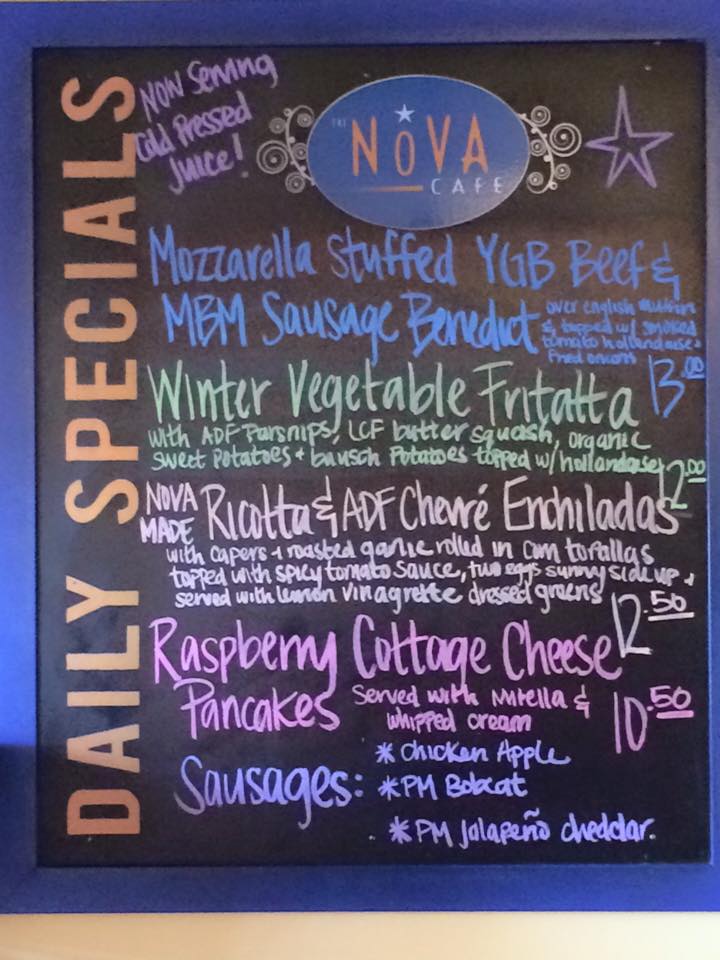 DAILY SPECIALS
NOW Serving
Cold Pressed
Juice!
THE
NOVA
CAFE
Mozzarella Stuffed YGB Beef &
MBM Sausage Benedict
over english muffin
& topped w/ smoked
tomato hollandaise +
Fried onions
13.00
Winter Vegetable Fritatta
with ADF Parsnips, LCF butter squash, organic
sweet Potatoes + bausch Potatoes topped w/ hollandaise
12.00
NOVA
MADE
Ricotta & ADF Chevré Enchiladas
with capers + roasted garlic rolled in corn tortillas
topped with spicy tomato sauce, two eggs sunny side up +
served with lemon vinagrette dressed greens
12.50
Raspberry Cottage Cheese
Pancakes
Served with Nutella &
whipped cream
10.50
Sausages:
* Chicken Apple
* PM Bobcat
* PM Jalapeño cheddar.